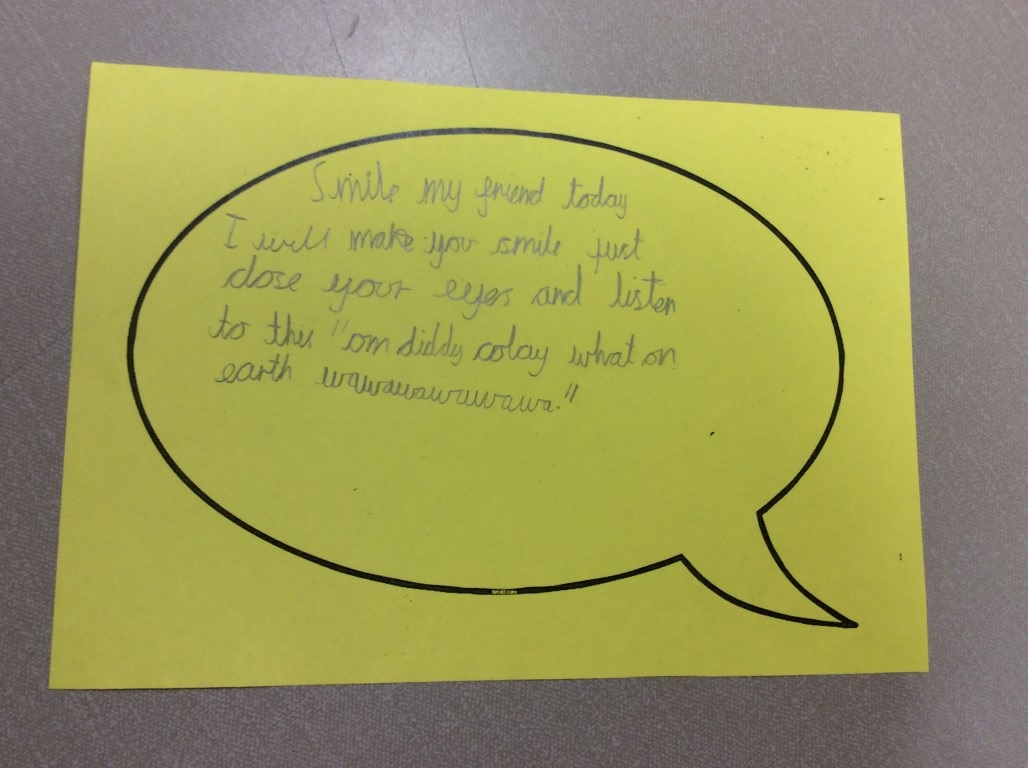 Smile my friend today
I will make you smile just
close your eyes and listen
to this "om diddy colay what on
earth wawawawawawawa."
twinkl.com